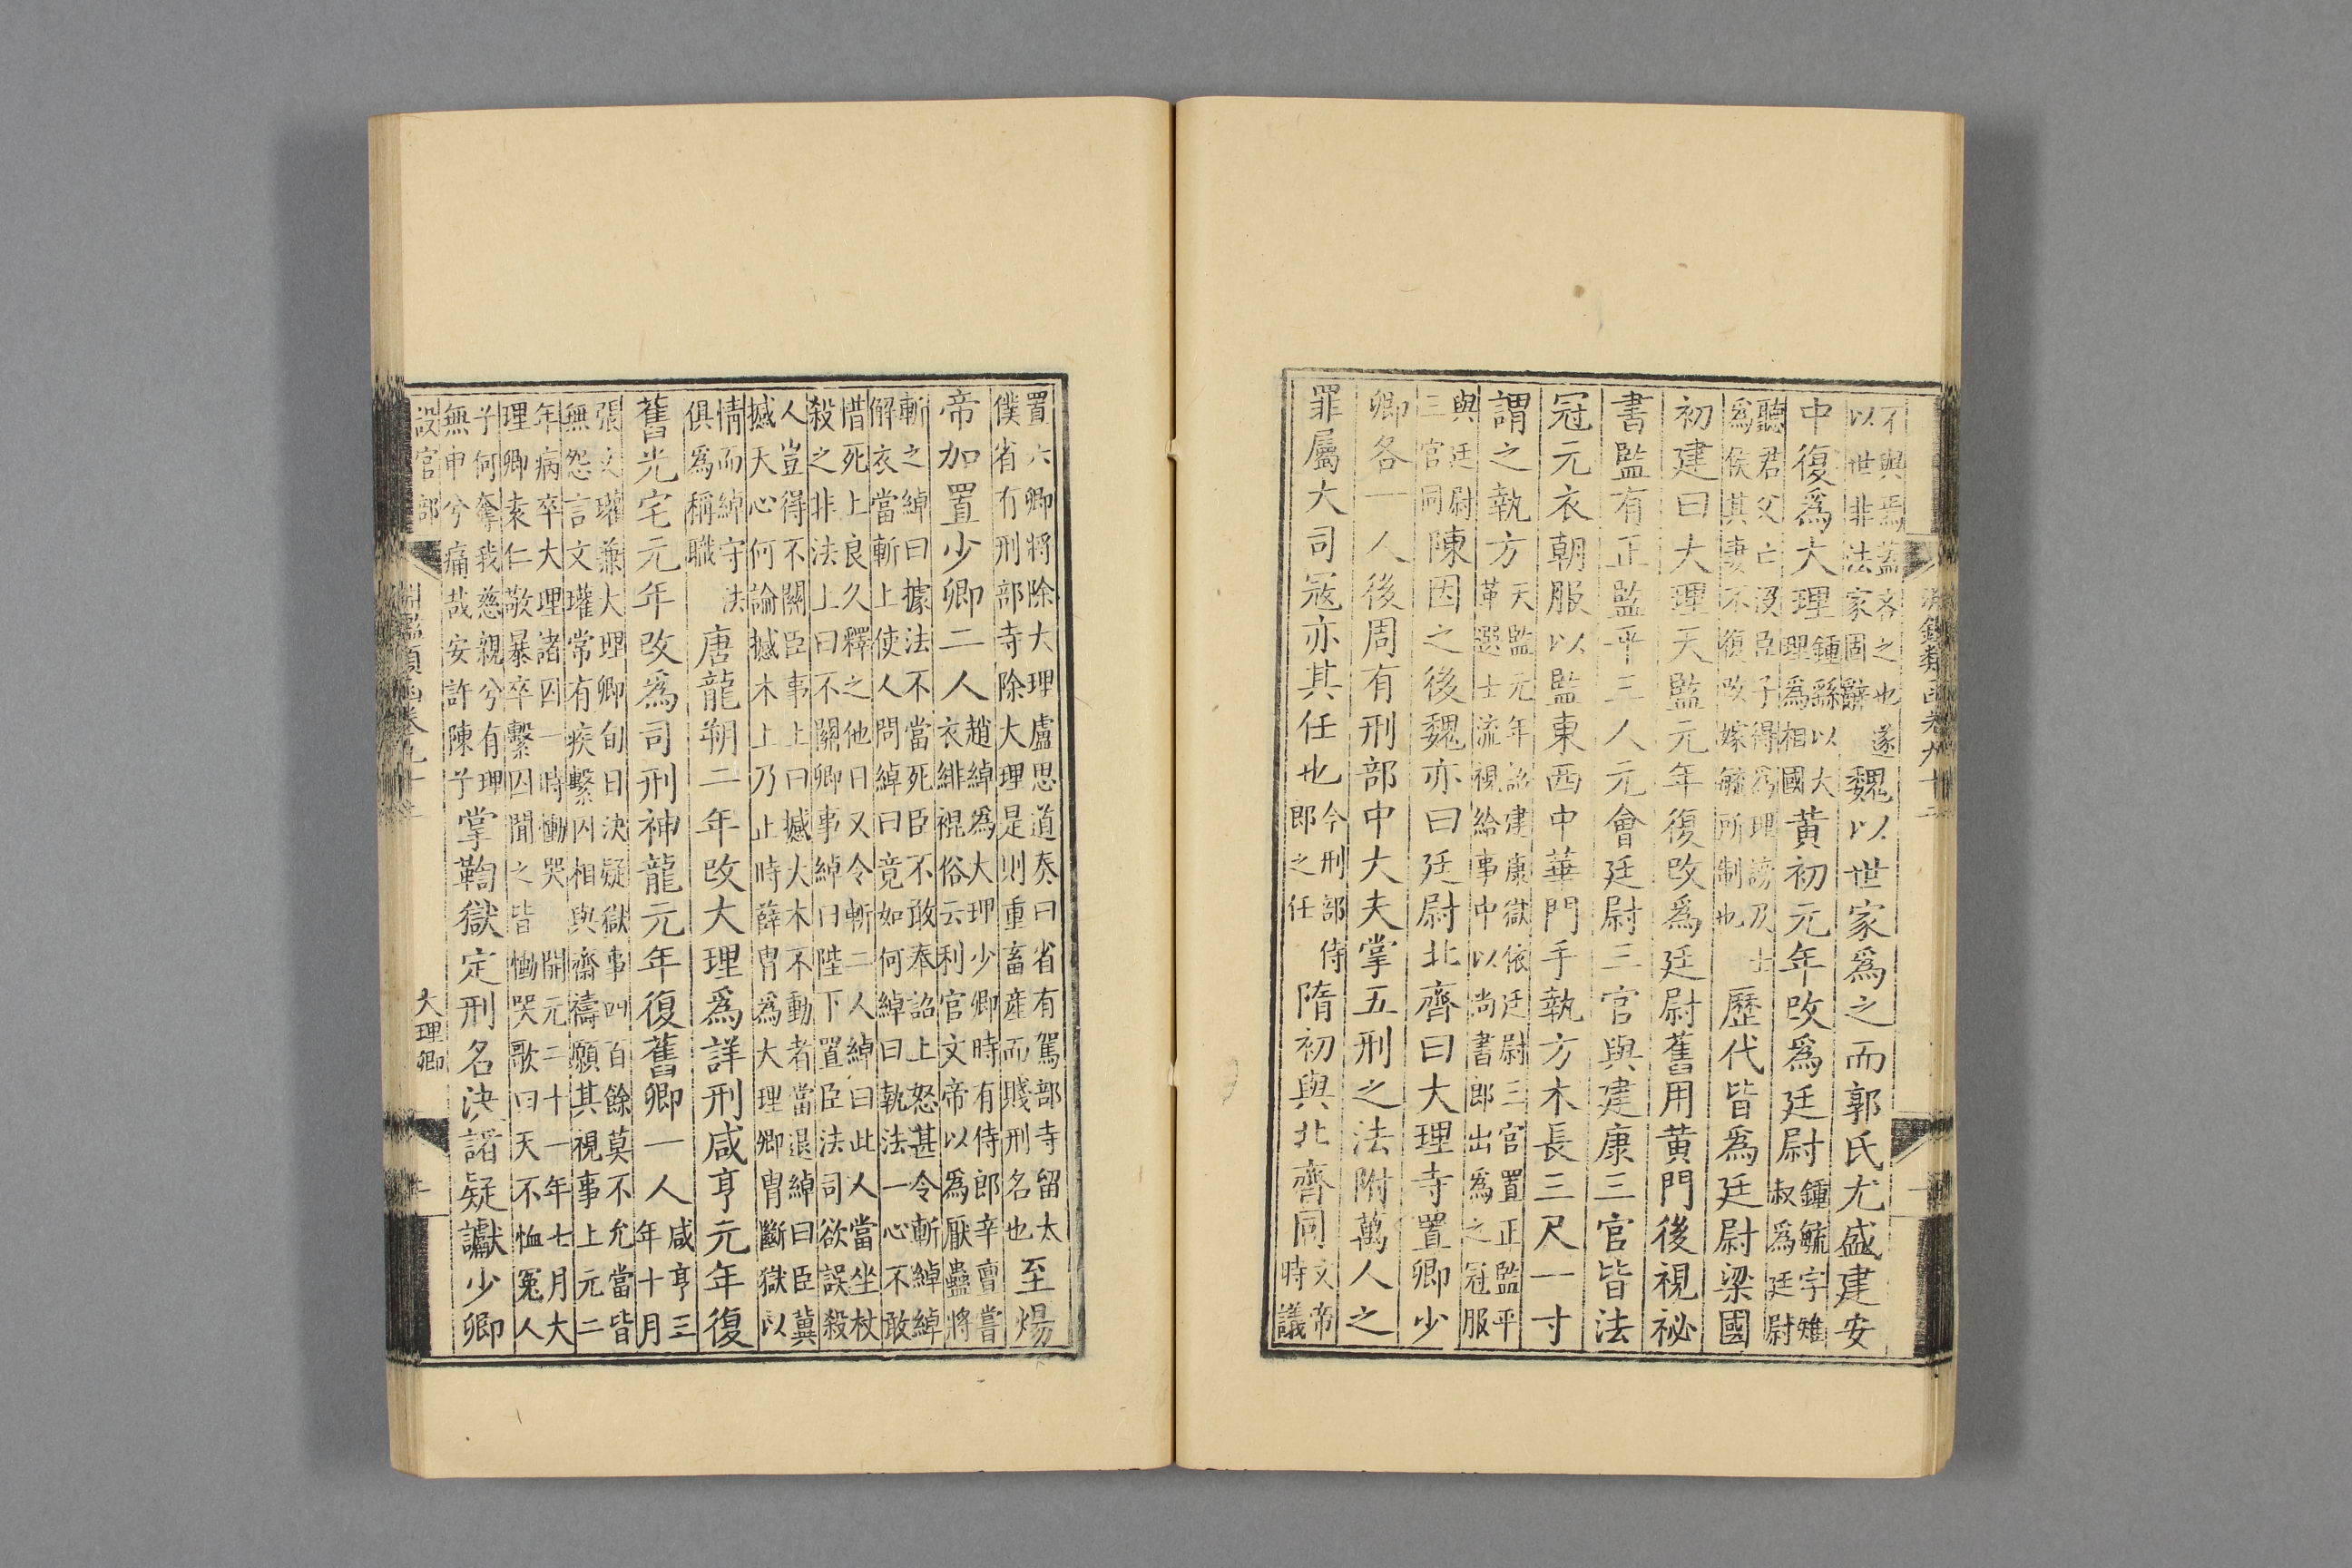 不與焉蓋吝之也遂
以世非法家固辭
魏以世家爲之而郭氏尤盛建安
中復爲大理
鍾繇以大
理爲相國
黃初元年改爲廷尉
鍾毓字雉
叔爲廷尉
聽君父亡沒臣子得爲理謗及士
爲侯其妻不復改嫁毓所制也
歷代皆爲廷尉梁國
初建曰大理天監元年復改爲廷尉舊用黃門後視祕
書監有正監平三人元會廷尉三官與建康三官皆法
冠元衣朝服以監東西中華門手執方木長三尺一寸
謂之執方
天監元年詔建康獄依廷尉三官置正監平
革選士流視給事中以尚書郎出爲之冠服
與廷尉
三官同
陳因之後魏亦曰廷尉北齊曰大理寺置卿少
卿各一人後周有刑部中大夫掌五刑之法附萬人之
罪屬大司寇亦其任也
今刑部侍
郎之任
隋初與北齊同
文帝
時議
置六卿將除大理盧思道奏曰省有駕部寺留太
僕省有刑部寺除大理是則重畜産而賤刑名也
至煬
帝加置少卿二人
趙綽爲大理少卿時有侍郎辛亶嘗
衣緋裩俗云利官文帝以爲厭蠱將
斬之綽曰據法不當死臣不敢奉詔上怒甚令斬綽綽
解衣當斬上使人問綽曰竟如何綽曰執法一心不敢
惜死上良久釋之他日又令斬二人綽曰此人當坐杖
殺之非法上曰不關卿事綽曰陛下置臣法司欲誤殺
人豈得不關臣事上曰撼大木不動者當退綽曰臣冀
撼天心何論撼木上乃止時薛胄爲大理卿胄斷獄以
情而綽守法
俱爲稱職
唐龍朔二年改大理爲詳刑咸亨元年復
舊光宅元年改爲司刑神龍元年復舊卿一人
咸亨三
年十月
張文瓘兼大理卿旬日決疑獄事四百餘莫不允當皆
無怨言文瓘常有疾繫囚相與齋禱願其視事上元二
年病卒大理諸囚一時慟哭 開元二十一年七月大
理卿袁仁敬暴卒繫囚聞之皆慟哭歌曰天不恤冤人
子何奪我慈親兮有理
無申兮痛哉安許陳乎
掌鞫獄定刑名決諸疑讞少卿
設官部
大理卿